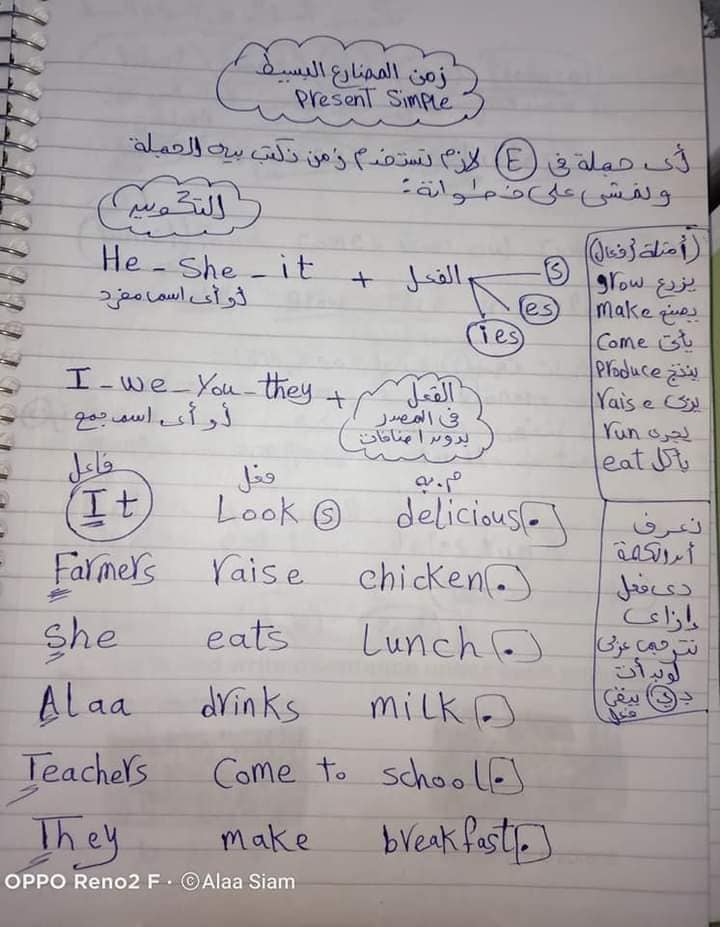 زمن المضارع البسيط
Present Simple
أى جملة فى E لازم تستخدم زمن نكتب بيه الجملة
ونمشى على خطواته:
التكوين
He - She - it + الفعل s
es
ies
أو أى اسم مفرد
I - we - You - they + الفعل
فى المصدر
بدون اضافات
أو أى اسم جمع
فاعل فعل م.به
It Look s delicious.
Farmers raise chicken.
She eats Lunch.
Alaa drinks milk.
Teachers Come to school.
They make breakfast.
(أمثلة أفعال)
grow يزرع
make يصنع
Come يأتى
Produce ينتج
raise يربى
run يجرى
eat يأكل
نعرف
أن الكلمة
دى فعل
إزاى
نترجمها عربى
لو بدأت
بـ ي يبقى
فعل
OPPO Reno2 F · ©Alaa Siam